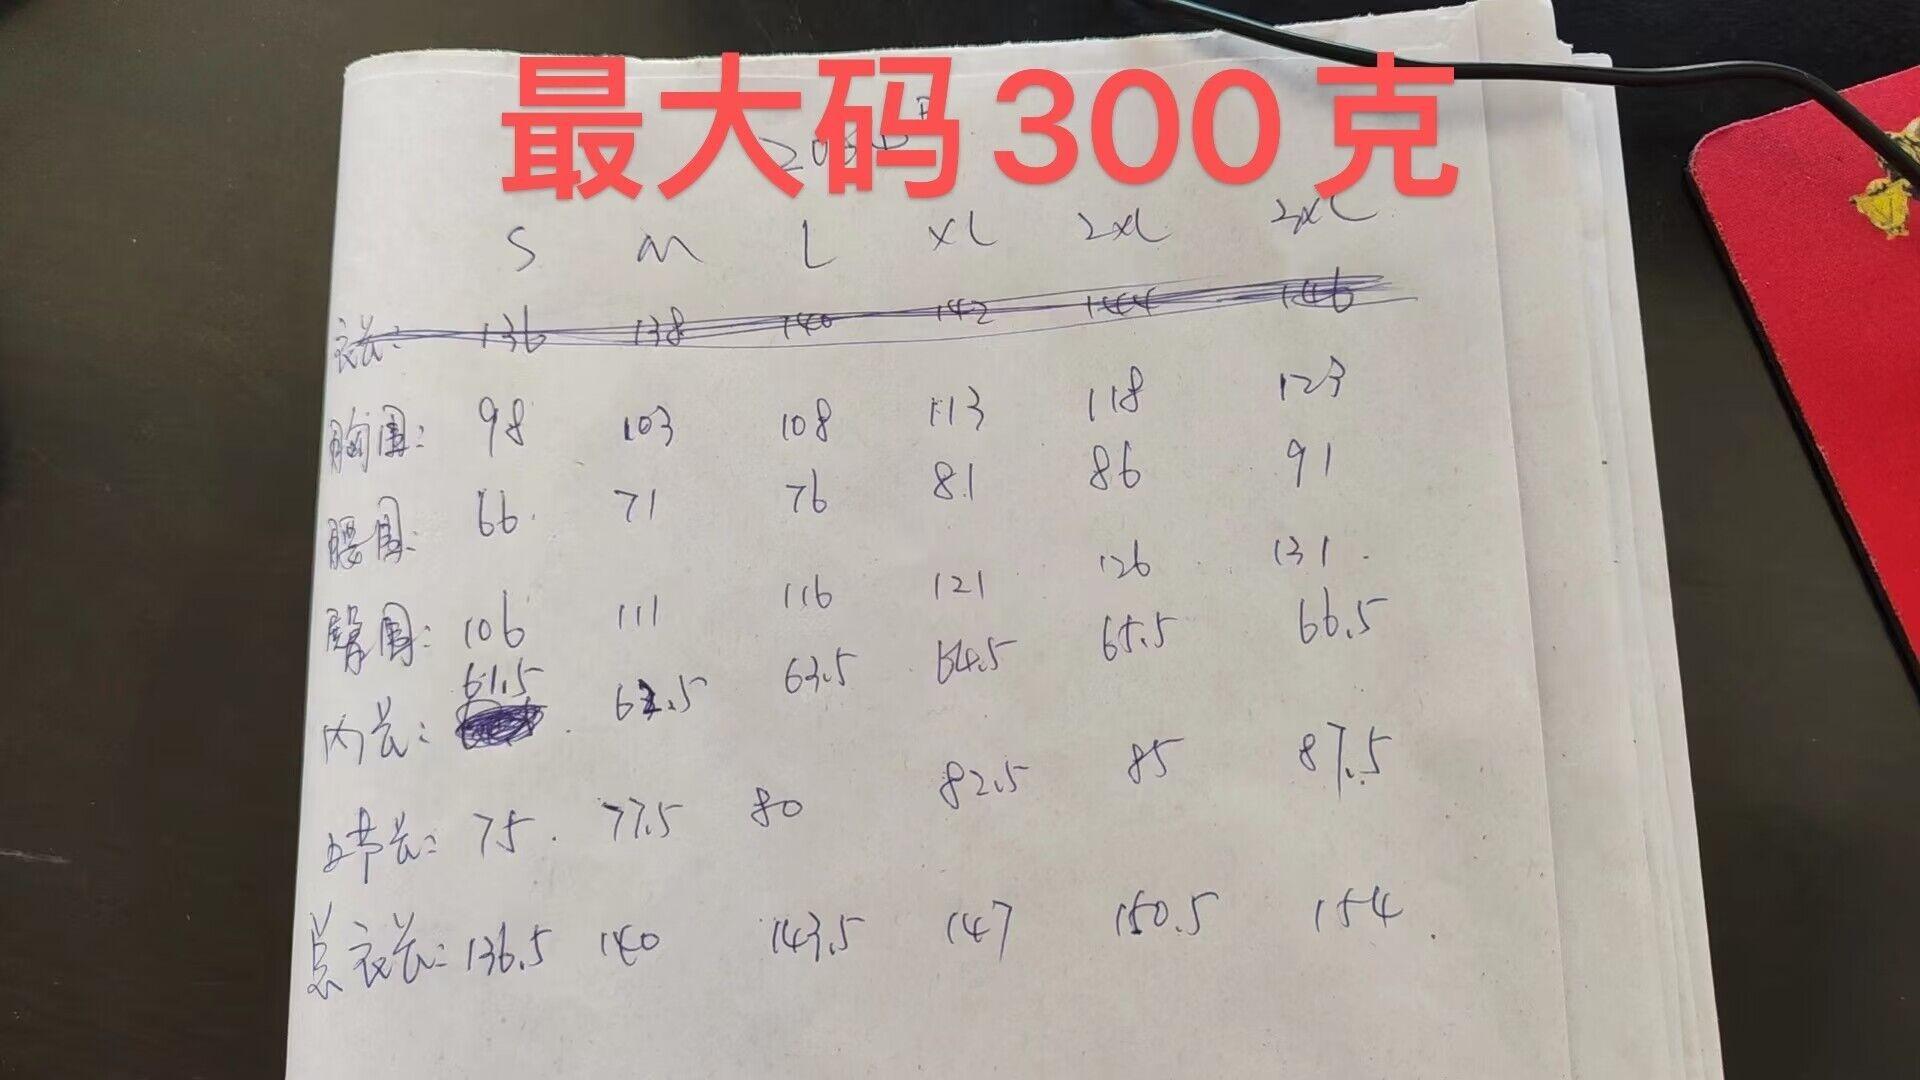 最大码300克
S M L XL 2XL 3XL
衣长: 136 138 140 142 144 146
胸围: 98 103 108 113 118 123
腰围: 66 71 76 81 86 91
臀围: 106 111 116 121 126 131
内长: 61.5 62.5 63.5 64.5 65.5 66.5
上节长: 75 77.5 80 82.5 85 87.5
总衣长: 136.5 140 143.5 147 150.5 154